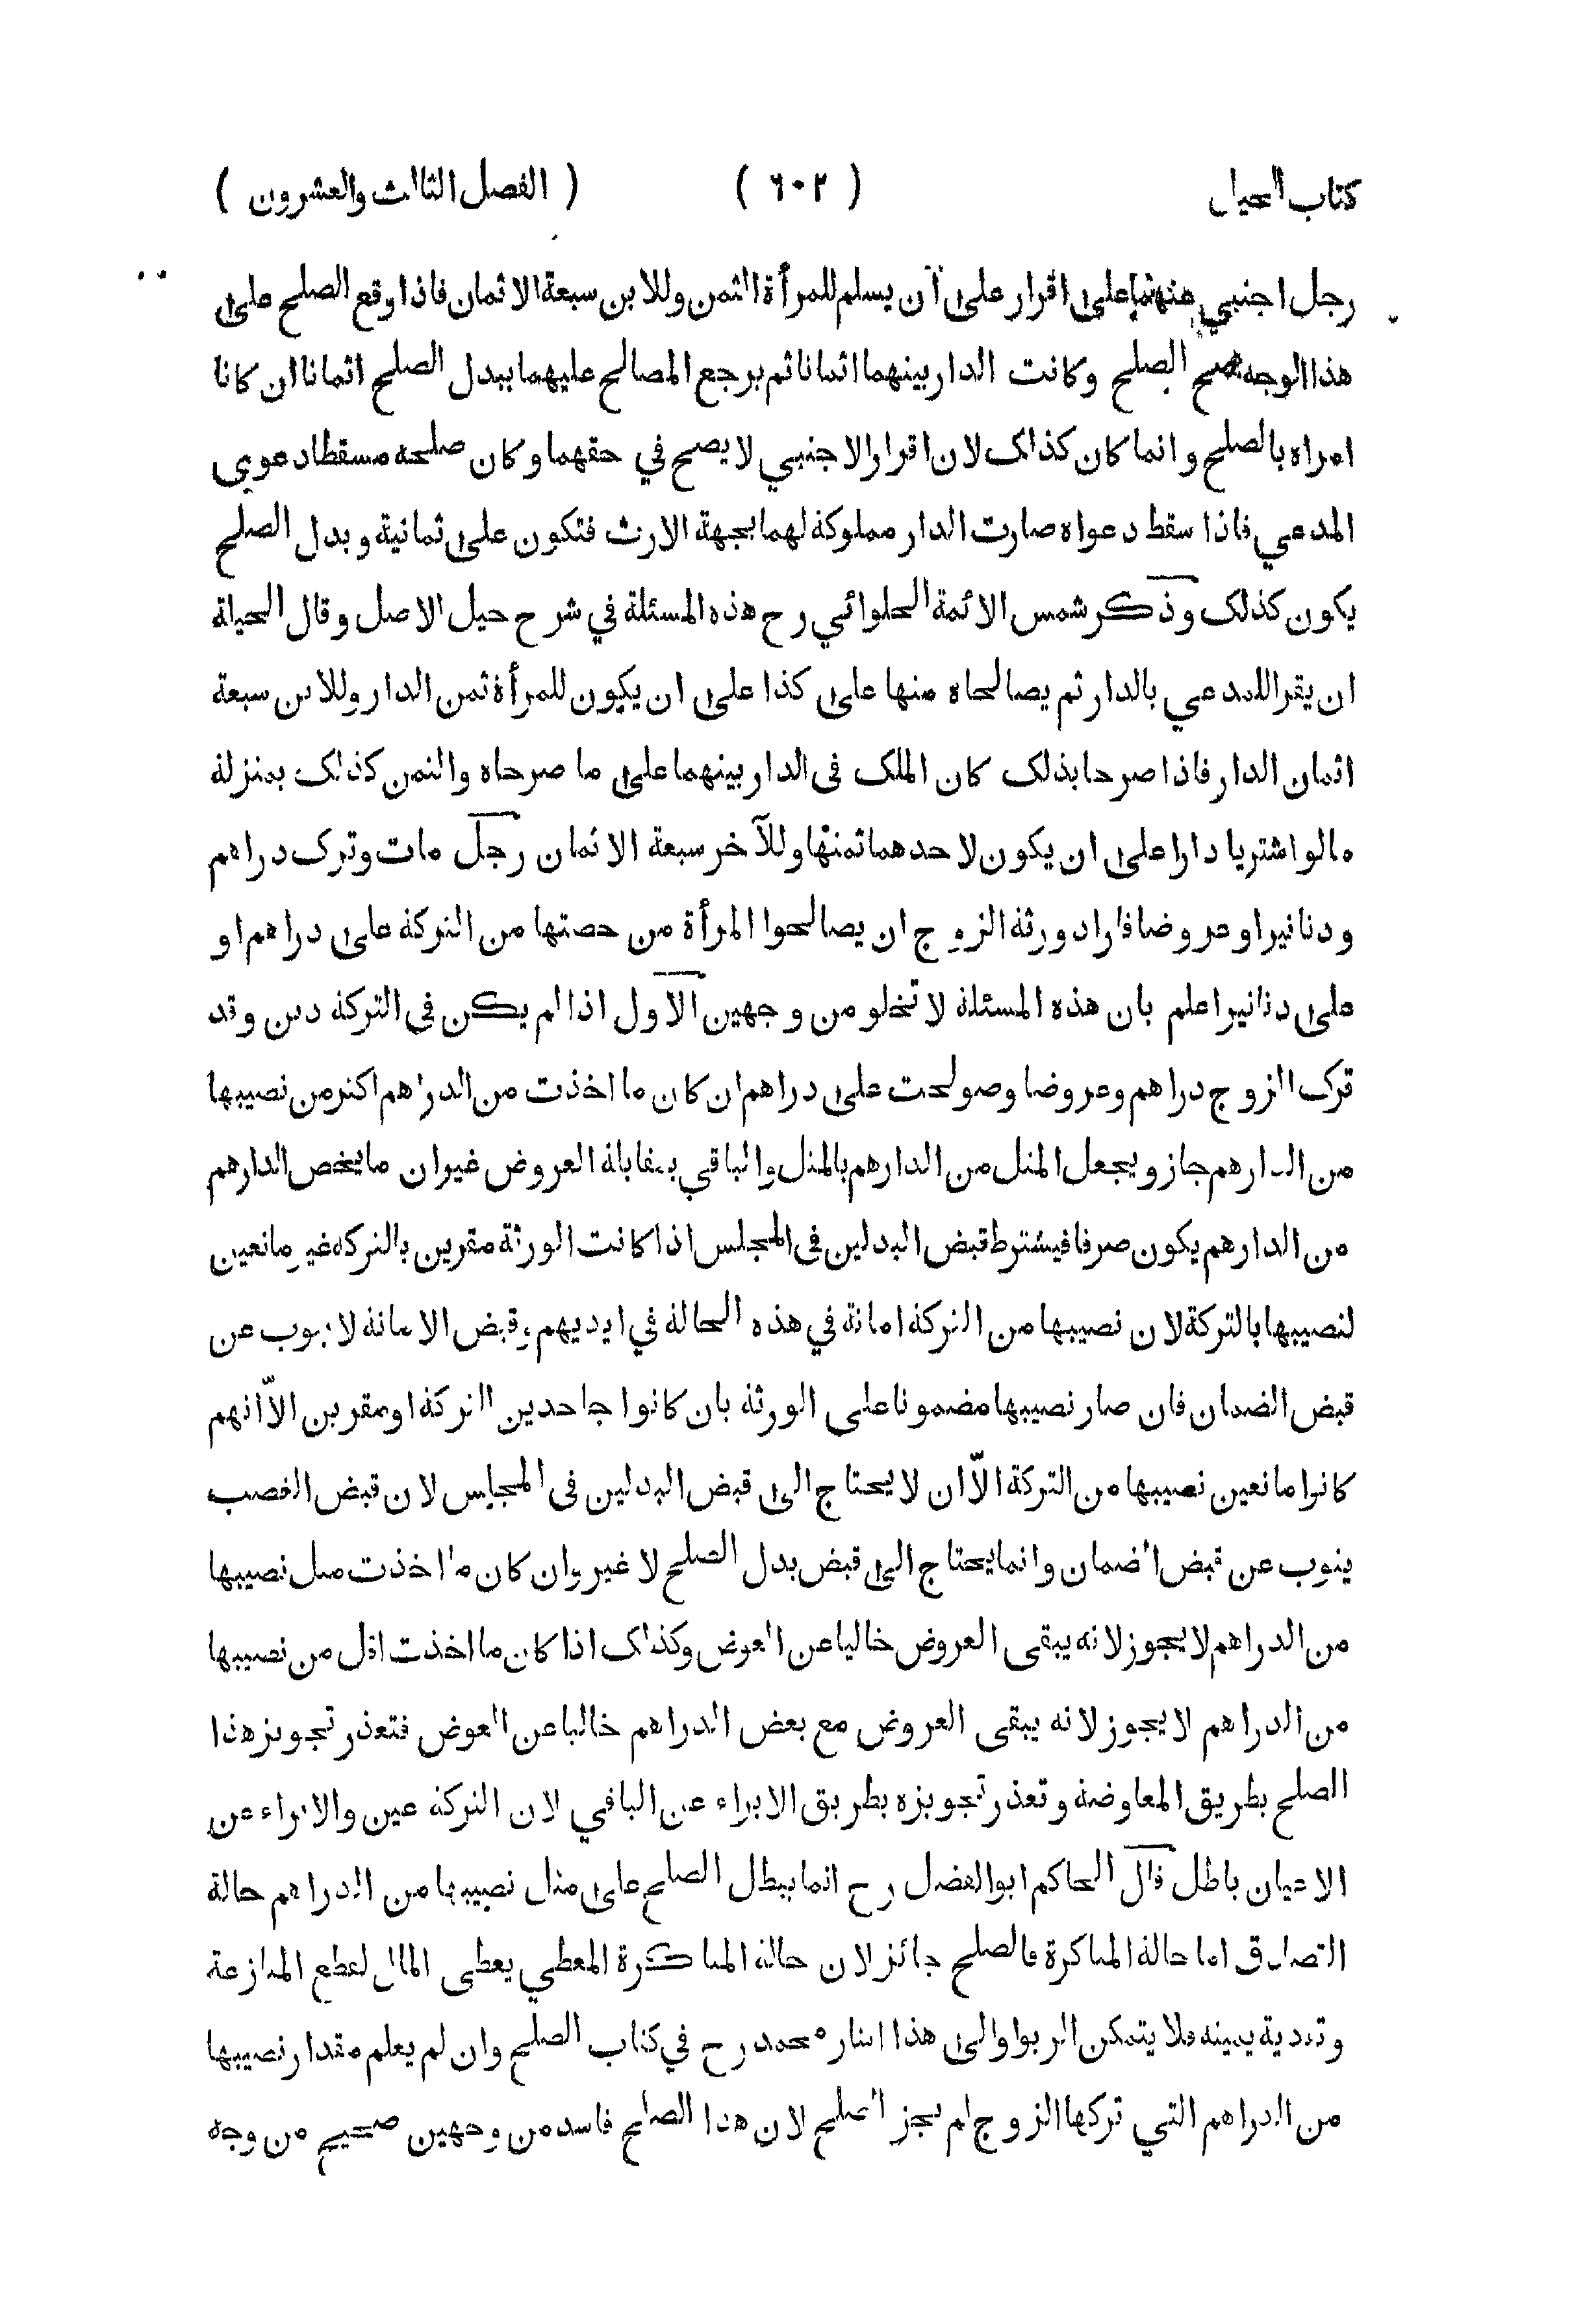 كتاب الحيل ( ٦٠٢ ) ( الفصل الثالث والعشرون )
رجل اجنبي عنهما على اقرار على ان يسلم للمرأة الثمن وللابن سبعة الاثمان فاذا وقع الصلح على
هذا الوجه صح الصلح وكانت الدار بينهما اثمانا ثم يرجع المصالح عليهما ببدل الصلح اثمانا ان كانا
امراه بالصلح وانما كان كذلك لان اقرار الاجنبي لا يصح في حقهما وكان صلحه مسقطا دعوى
المدعي فاذا سقط دعواه صارت الدار مملوكة لهما بجهة الارث فتكون على ثمانية وبدل الصلح
يكون كذلك وذكر شمس الائمة الحلوائي رح هذه المسئلة في شرح حيل الاصل وقال الحيلة
ان يقرا للمدعي بالدار ثم يصالحاه منها على كذا على ان يكون للمرأة ثمن الدار وللابن سبعة
اثمان الدار فاذا صرحا بذلك كان الملك فى الدار بينهما على ما صرحاه والثمن كذلك بمنزلة
مالو اشتريا دارا على ان يكون لاحدهما ثمنها وللآخر سبعة الاثمان رجل مات وترك دراهم
ودنانير او عروضا فاراد ورثة الزوج ان يصالحوا المرأة من حصتها من التركة على دراهم او
على دنانير اعلم بان هذه المسئلة لا تخلو من وجهين الاول اذا لم يكن فى التركة دين وقد
ترك الزوج دراهم وعروضا وصولحت على دراهم ان كان ما اخذت من الدراهم اكثر من نصيبها
من الدارهم جاز ويجعل المثل من الدارهم بالمثل والباقي بمقابلة العروض غيران ما يخص الدارهم
من الدارهم يكون صرفا فيشترط قبض البدلين فى المجلس اذا كانت الورثة مقرين بالتركه غير مانعين
لنصيبها بالتركة لان نصيبها من التركة امانة في هذه الحالة في ايديهم وقبض الامانة لا ينوب عن
قبض الضمان فان صار نصيبها مضمونا على الورثة بان كانوا جاحدين التركة او مقربن الاّ انهم
كانوا مانعين نصيبها من التركة الاّ ان لا يحتاج الى قبض البدلين فى المجلس لان قبض الغصب
ينوب عن قبض الضمان وانما يحتاج الى قبض بدل الصلح لا غير وان كان ما اخذت مثل نصيبها
من الدراهم لا يجوز لانه يبقى العروض خاليا عن العوض وكذلك اذا كان ما اخذت اقل من نصيبها
من الدراهم لا يجوز لانه يبقى العروض مع بعض الدراهم خاليا عن العوض فتعذر تجويز هذا
الصلح بطريق المعاوضة وتعذر تجويزه بطريق الابراء عن الباقي لان التركة عين والابراء عن
الاعيان باطل قال الحاكم ابوالفضل رح انما يبطل الصلح على مثل نصيبها من الدراهم حالة
التصادق اما حالة المناكرة فالصلح جائز لان حالة المناكرة المعطي يعطى المال لقطع المنازعة
وتفدية يمينه فلا يتمكن الربوا والى هذا اشار محمد رح في كتاب الصلح وان لم يعلم مقدار نصيبها
من الدراهم التي تركها الزوج لم يجز الصلح لان هذا الصلح فاسد من وجهين صحيح من وجه